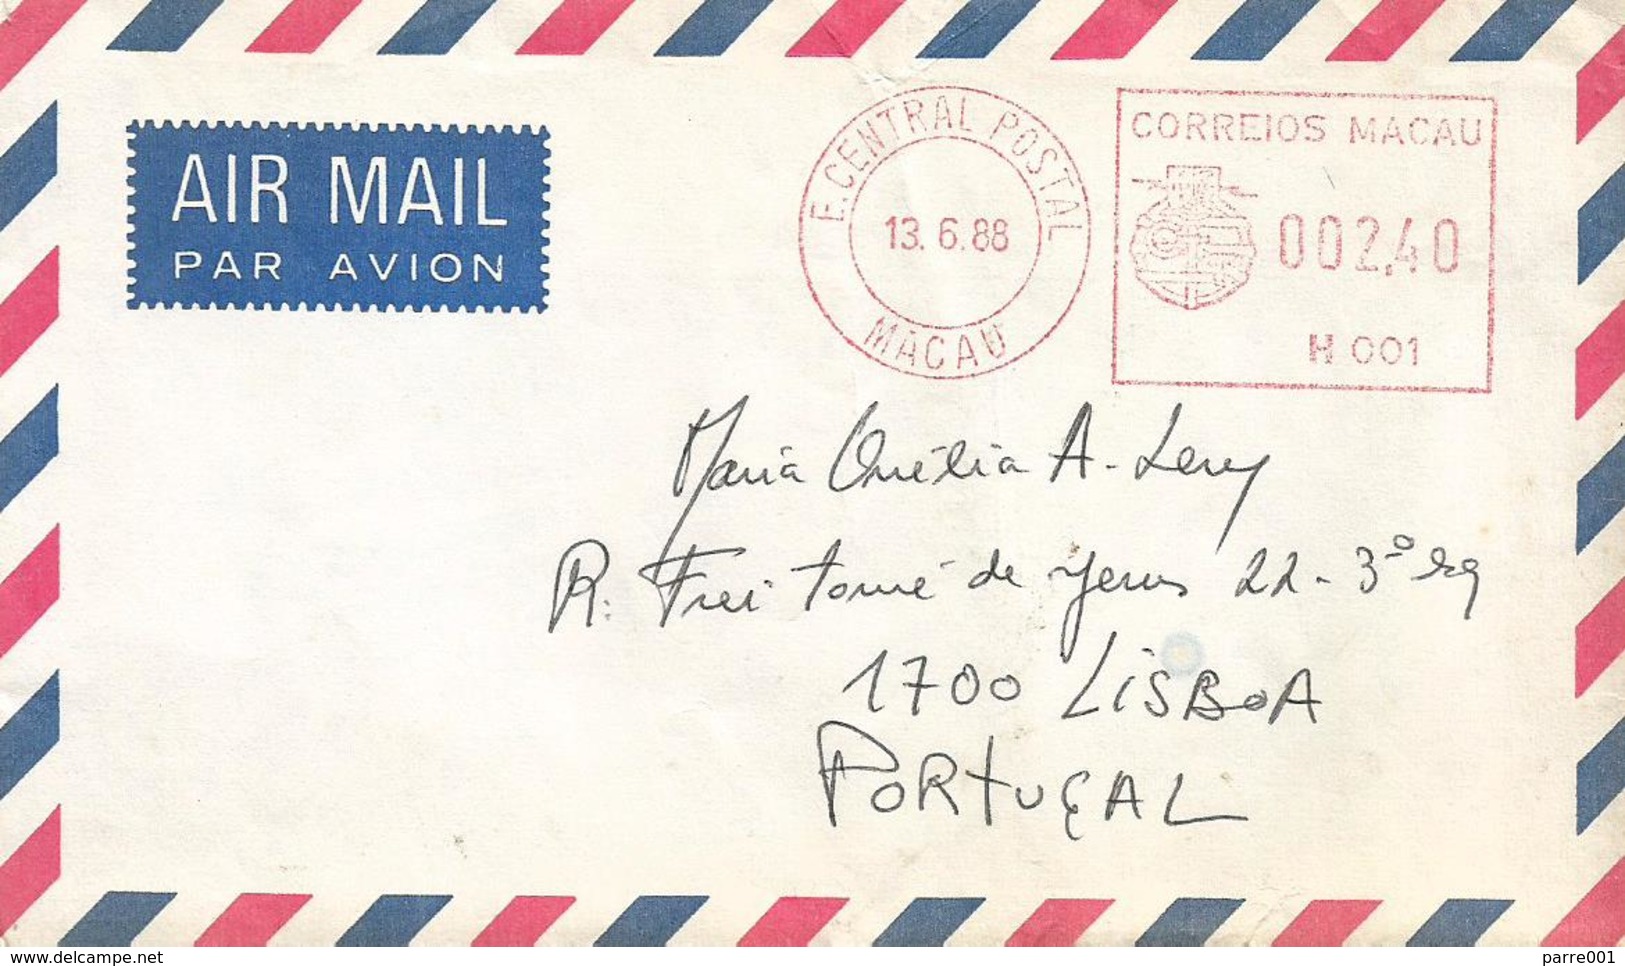 AIR MAIL
PAR AVION
E.CENTRAL POSTAL
13. 6.88
MACAU
CORREIOS MACAU
002,40
H 001
Maria A.
R. Frei Tomé de Jesus 22-3º
1700 LISBOA
PORTUGAL
delcampe.net
parre001